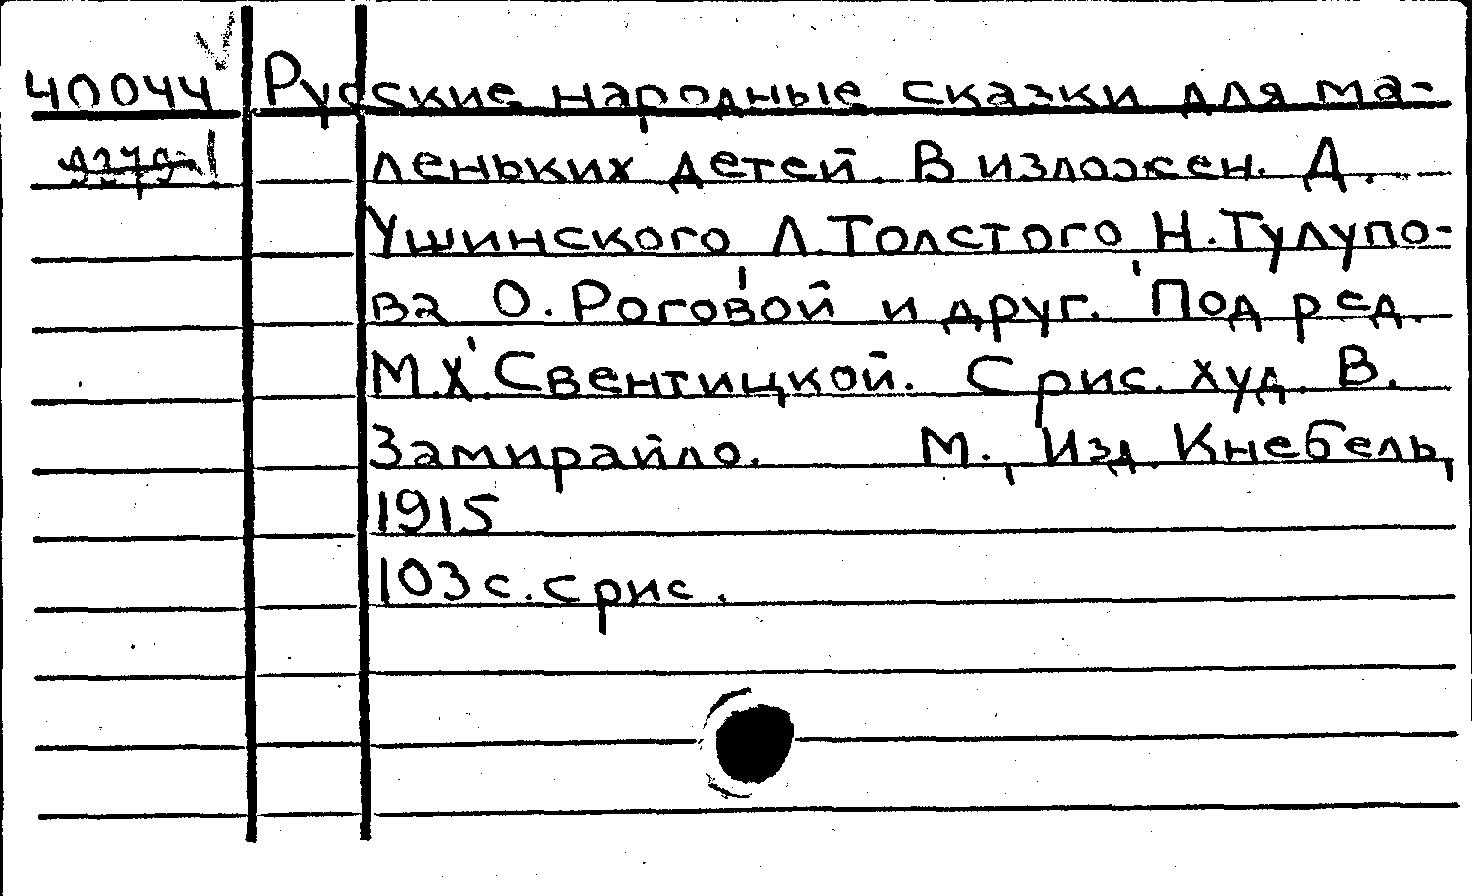 40044 Русские народные сказки для ма-
леньких детей. В изложен. Д.
Ушинского Л.Толстого Н.Тулупо-
ва О. Роговой и друг. Под ред.
М.Х. Свентицкой. С рис. худ. В.
Замирайло. М., Изд. Кнебель,
1915
103 с. с рис.